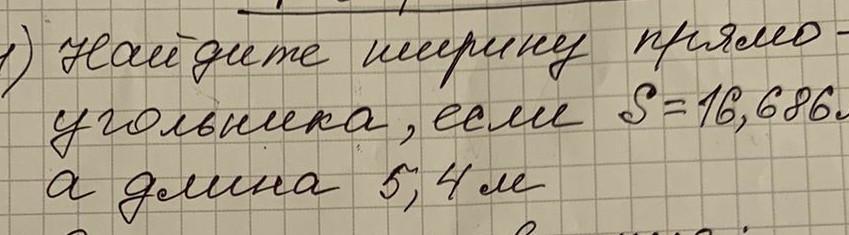 1) Найдите ширину прямо-
угольника, если S=16,686
а длина 5,4 м